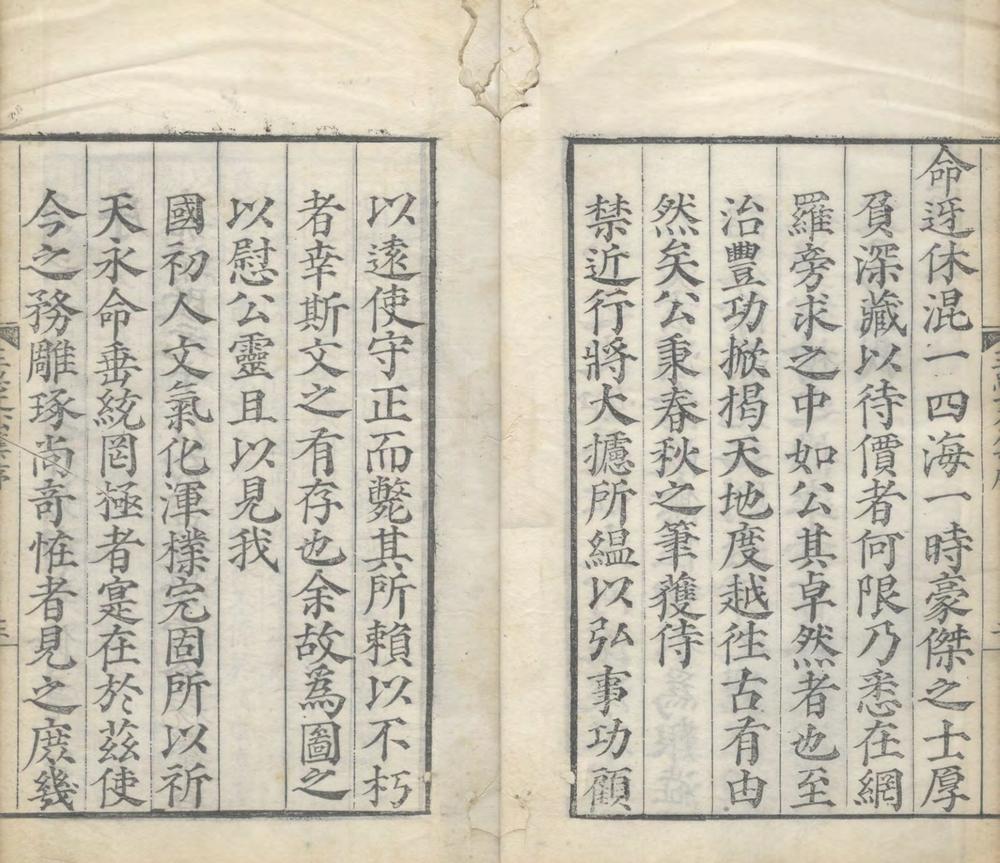 命迓休混一四海一時豪傑之士厚
負深藏以待價者何限乃悉在網
羅旁求之中如公其卓然者也至
治豐功掀揭天地度越徃古有由
然矣公秉春秋之筆獲待
禁近行將大攄所緼以弘事功顧
以遠使守正而斃其所賴以不朽
者幸斯文之有存也余故爲圖之
以慰公靈且以見我
國初人文氣化渾樸完固所以祈
天永命垂統罔極者寔在於茲使
今之務雕琢尚竒恠者見之庶幾